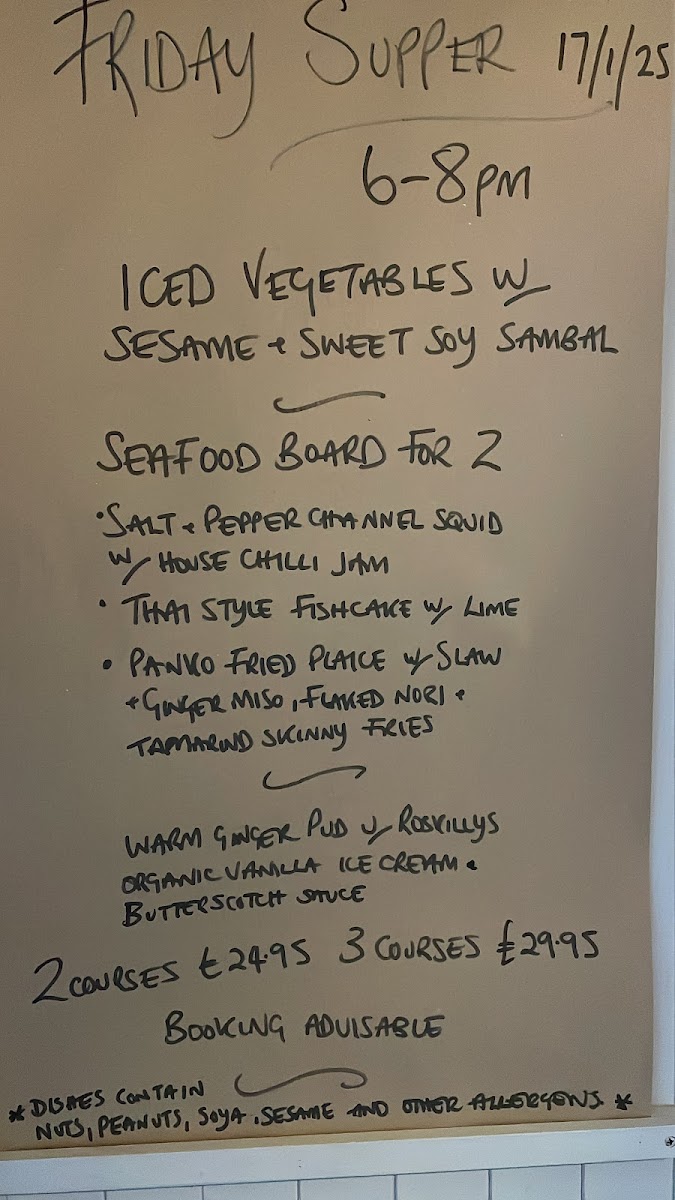 FRIDAY SUPPER 17/1/25
6-8PM
ICED VEGETABLES W/
SESAME + SWEET SOY SAMBAL
SEAFOOD BOARD FOR 2
• SALT + PEPPER CHANNEL SQUID
W/ HOUSE CHILLI JAM
• THAI STYLE FISHCAKE W/ LIME
• PANKO FRIED PLAICE W/ SLAW
+ GINGER MISO, FLAKED NORI +
TAMARIND SKINNY FRIES
WARM GINGER PUD W/ ROSKILLYS
ORGANIC VANILLA ICE CREAM +
BUTTERSCOTCH SAUCE
2 COURSES £24.95 3 COURSES £29.95
BOOKING ADVISABLE
* DISHES CONTAIN
NUTS, PEANUTS, SOYA, SESAME AND OTHER ALLERGENS *